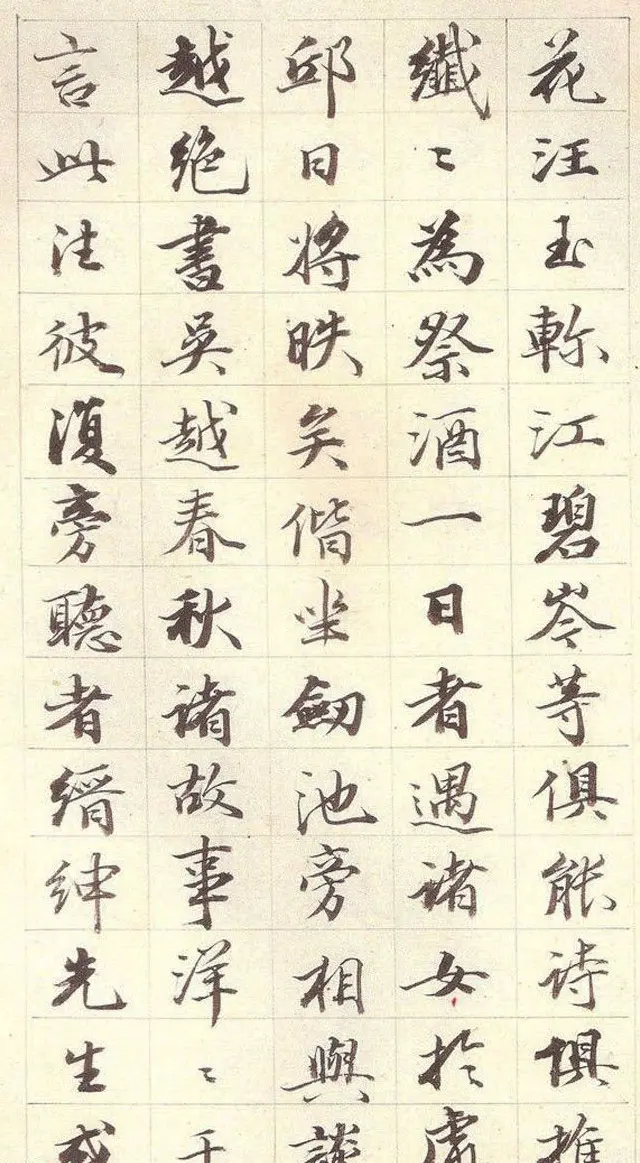 花汪玉軫江碧岑等俱能詩俱推
纖々為祭酒一日者遇諸女於虎
邱日將昳矣偕坐劒池旁相與談
越絕書吳越春秋諸故事洋々千
言此往彼復旁聽者縉紳先生或